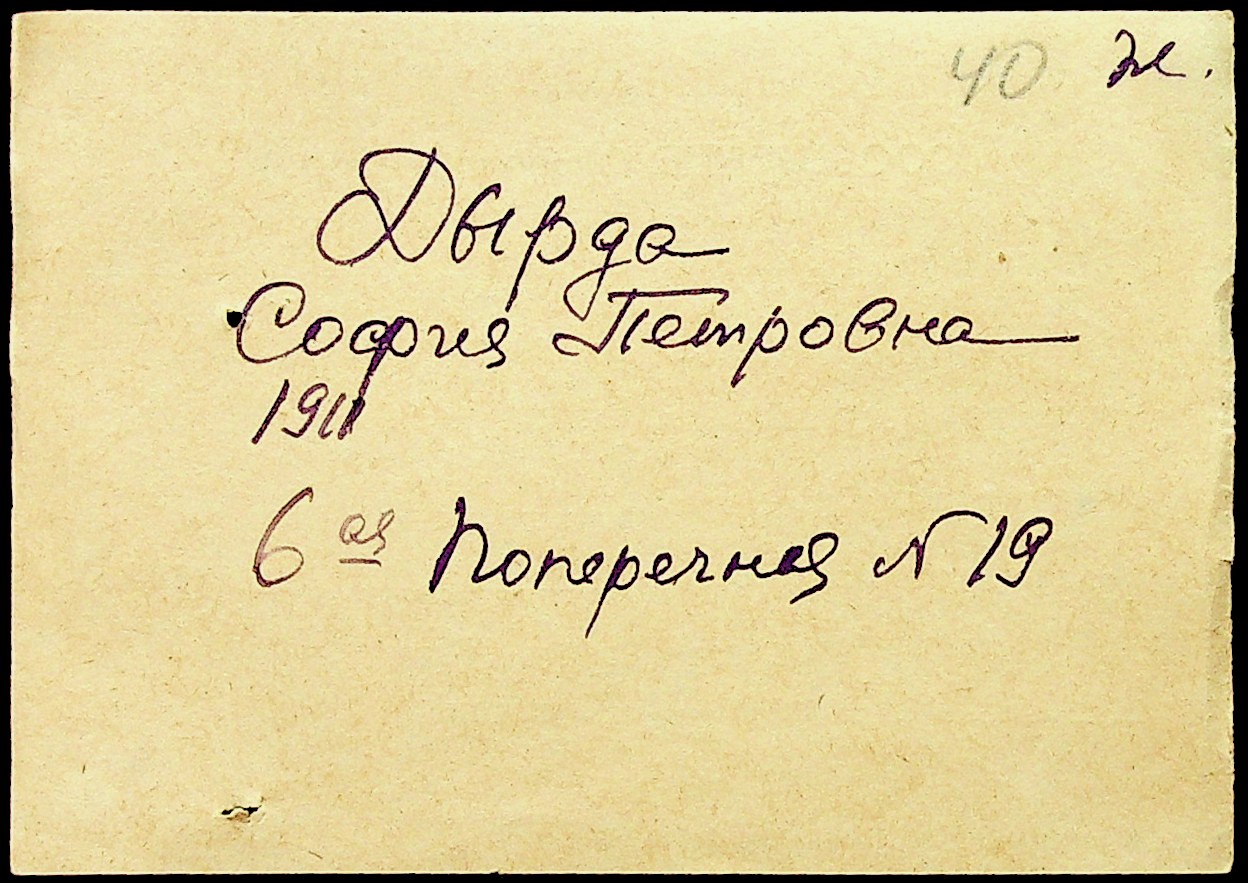 40 ж.
Дырда
София Петровна
1911
6ая Поперечная N 19